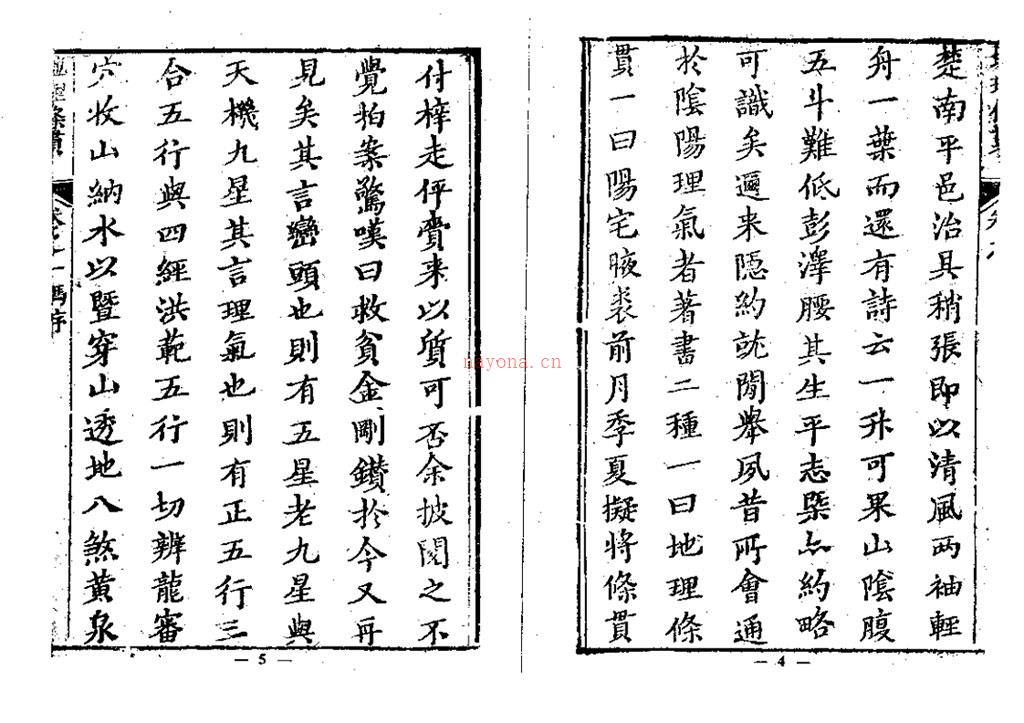 楚南平邑治具稍張即以清風两袖輕
舟一葉而還有詩云一升可果山隂腹
五斗難低彭澤腰其生平志槩亦約略
可識矣邇来隠約就閒舉夙昔所會通
扵隂陽理氣者著書二種一曰地理條
貫一曰陽宅腋裘前月季夏擬將條貫
付梓走伻賷来以質可否余披閱之不
覺拍案驚嘆曰救貧金剛鑚扵今又再
見矣其言巒頭也則有五星老九星與
天機九星其言理氣也則有正五行三
合五行與四經洪範五行一切辨龍審
穴收山納水以暨穿山透地八煞黄泉
條貫
馮序
— 4 —
— 5 —
nayona.cn